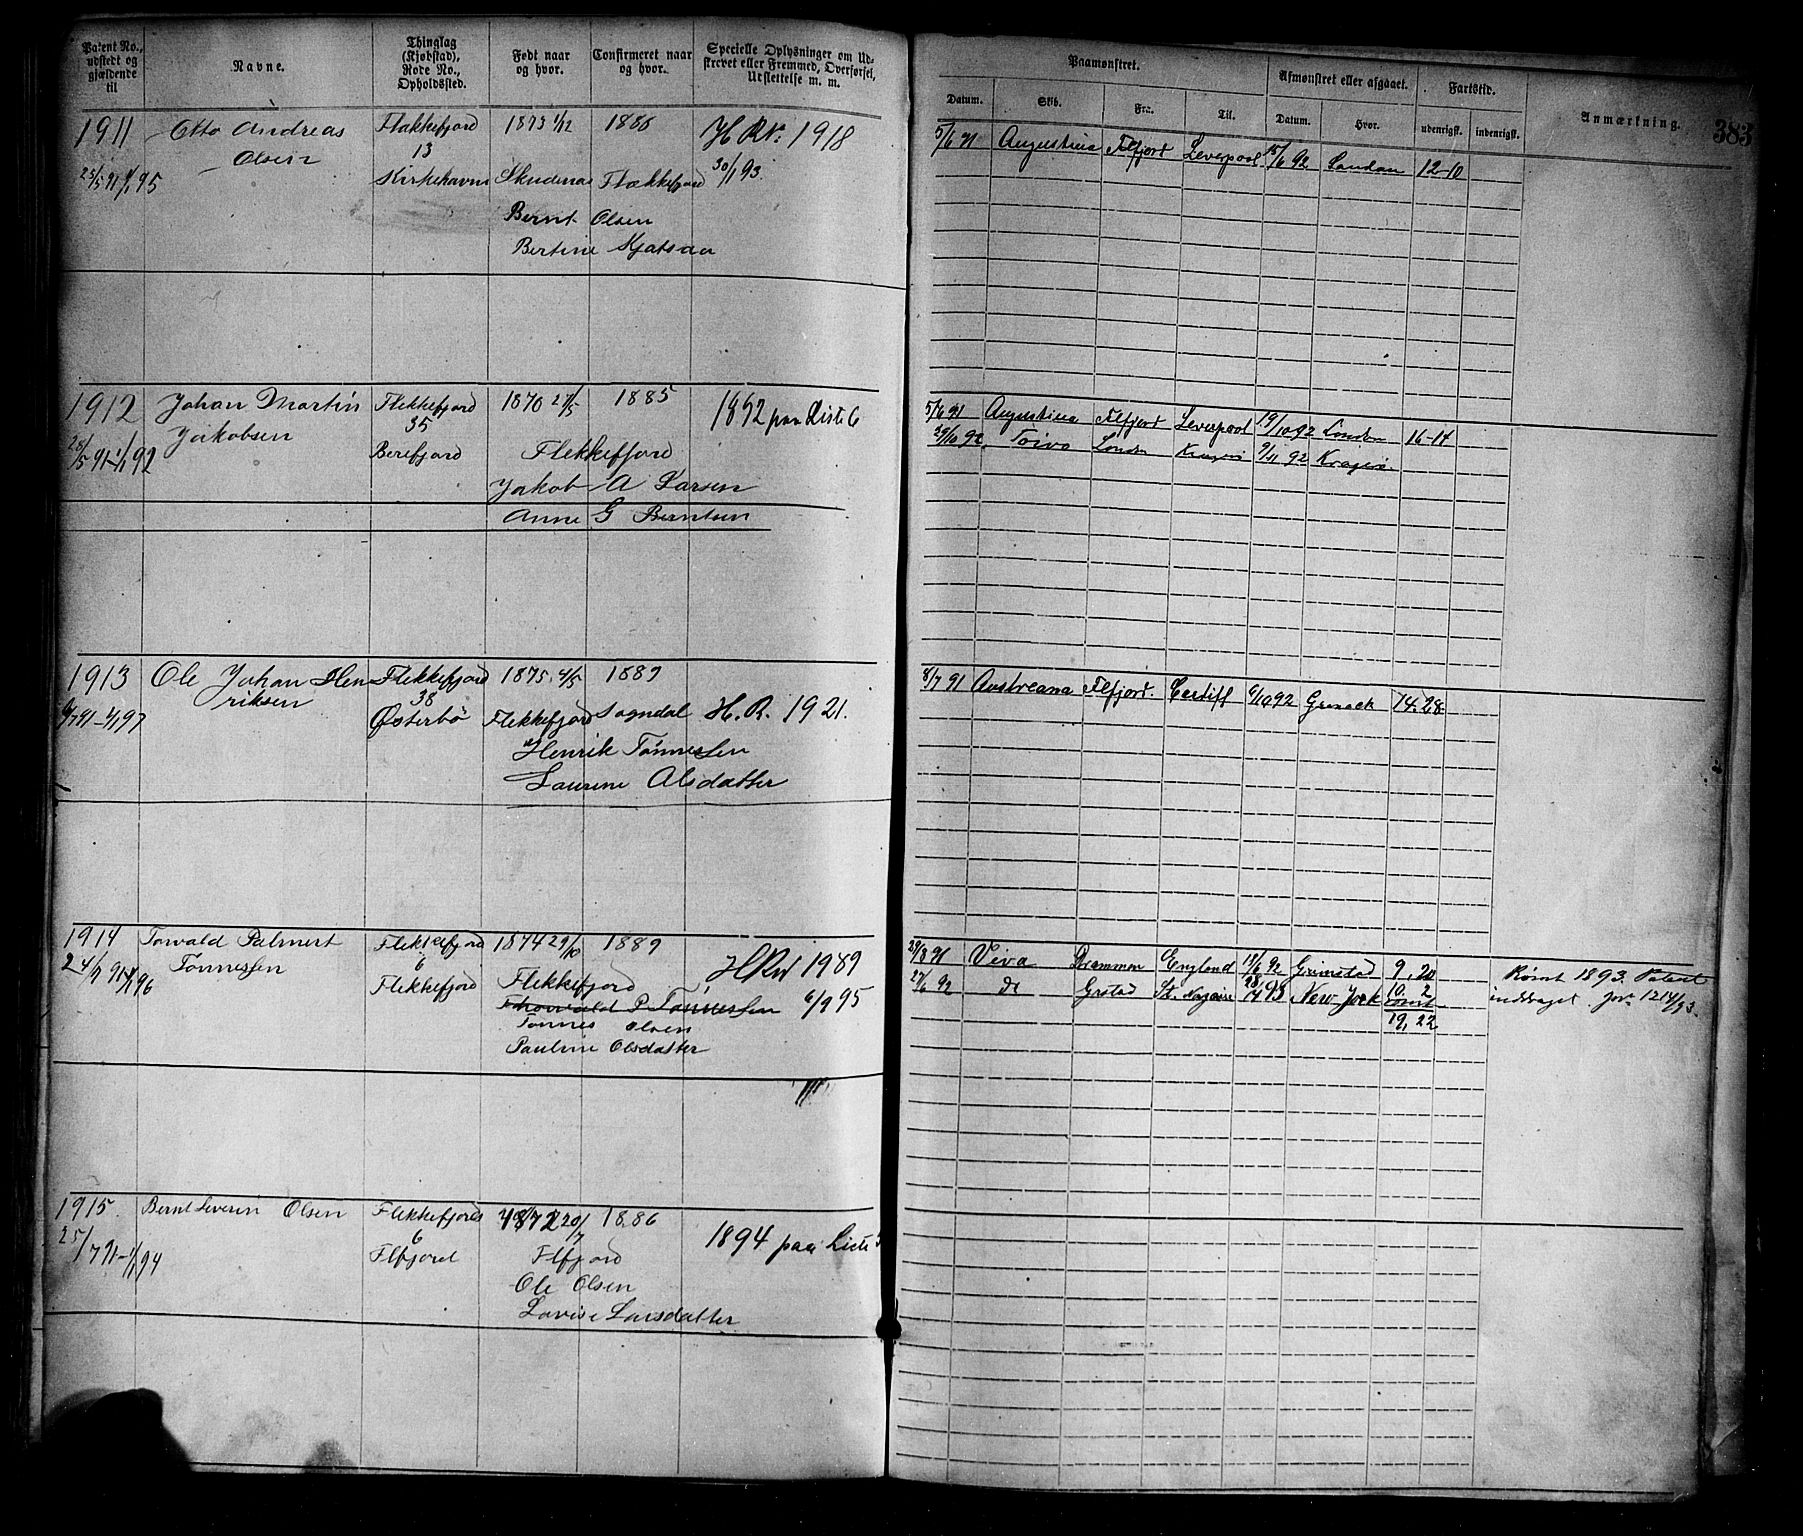 Patent No., udstedt og gjældende til
Navne.
Thinglag (Kjøbstad), Rode No., Opholdssted.
Født naar og hvor.
Confirmeret naar og hvor.
Specielle Oplysninger om Udskrevet eller Fremmed, Overførsel, Udslettelse m. m.
Paamønstret.
Afmønstret eller afgaaet.
Fartstid.
Anmærkning.
383
Datum.
Skib.
Fra.
Til.
Datum.
Hvor.
udenrigsk.
indenrigsk.
1911 Otto Andreas Flækkefjord 1873 1/12 1886 H R Nr. 1918
Olsen 13 30/1 93.
25/5 91 1/1 95 Kirkehavn Skudenes Flækkefjord
Bernt Olsen
Bertine
5/6 91 Augustina Flfjort Leverpool 15/6 92 London 12-10
1912 Johan Martin Flekkefjord 1870 27/5 1885 1852 paa Liste 6
Jakobsen 35
28/5 91-1/1 92 Berefjord Flekkefjord
Jakob A Larsen
Anne G Berntsen
5/6 91 Augustina Flfjort Leverpool 19/10 92 London 16-14
29/10 92 Toivo London Kragerø 9/11 92 Kragerø.
1913 Ole Johan Hen Flekkefjord 1875 4/5 1889
riksen 38
6/7 91-1/1 97 Østerbø Flekkefjord Sogndal H. R. 1921.
Henrik Tønnessen
Laurine Olsdatter
8/7 91 Austreana Flfjord. Cardiff 6/10 92 Grenock 14.28
1914 Torvald Palmert Flekkefjord 1874 29/10 1889 H Rw 1989
Tønnessen 6
24/7 91-1/1 96 Flekkefjord Flekkefjord
Thorvald P Tønnessen 6/9 95
Tønnes Olsen
Pauline Olsdatter
29/8 91 Viva Drammen England 18/6 92 Grimstad 9, 20
27/6 92 do Grstad St. Nazaire 28/4 93 New York 10. 2
rømt
19, 22
Rømt 1893. Patent
inddraget. Jour 1214/93.
1915. Bernt Severin Olsen Flekkefjord 1872 20/7 1886
6
25/7 91-1/1 94 Flfjord Flfjord 1894 paa Liste
Ole Olsen
Lovise Larsdatter